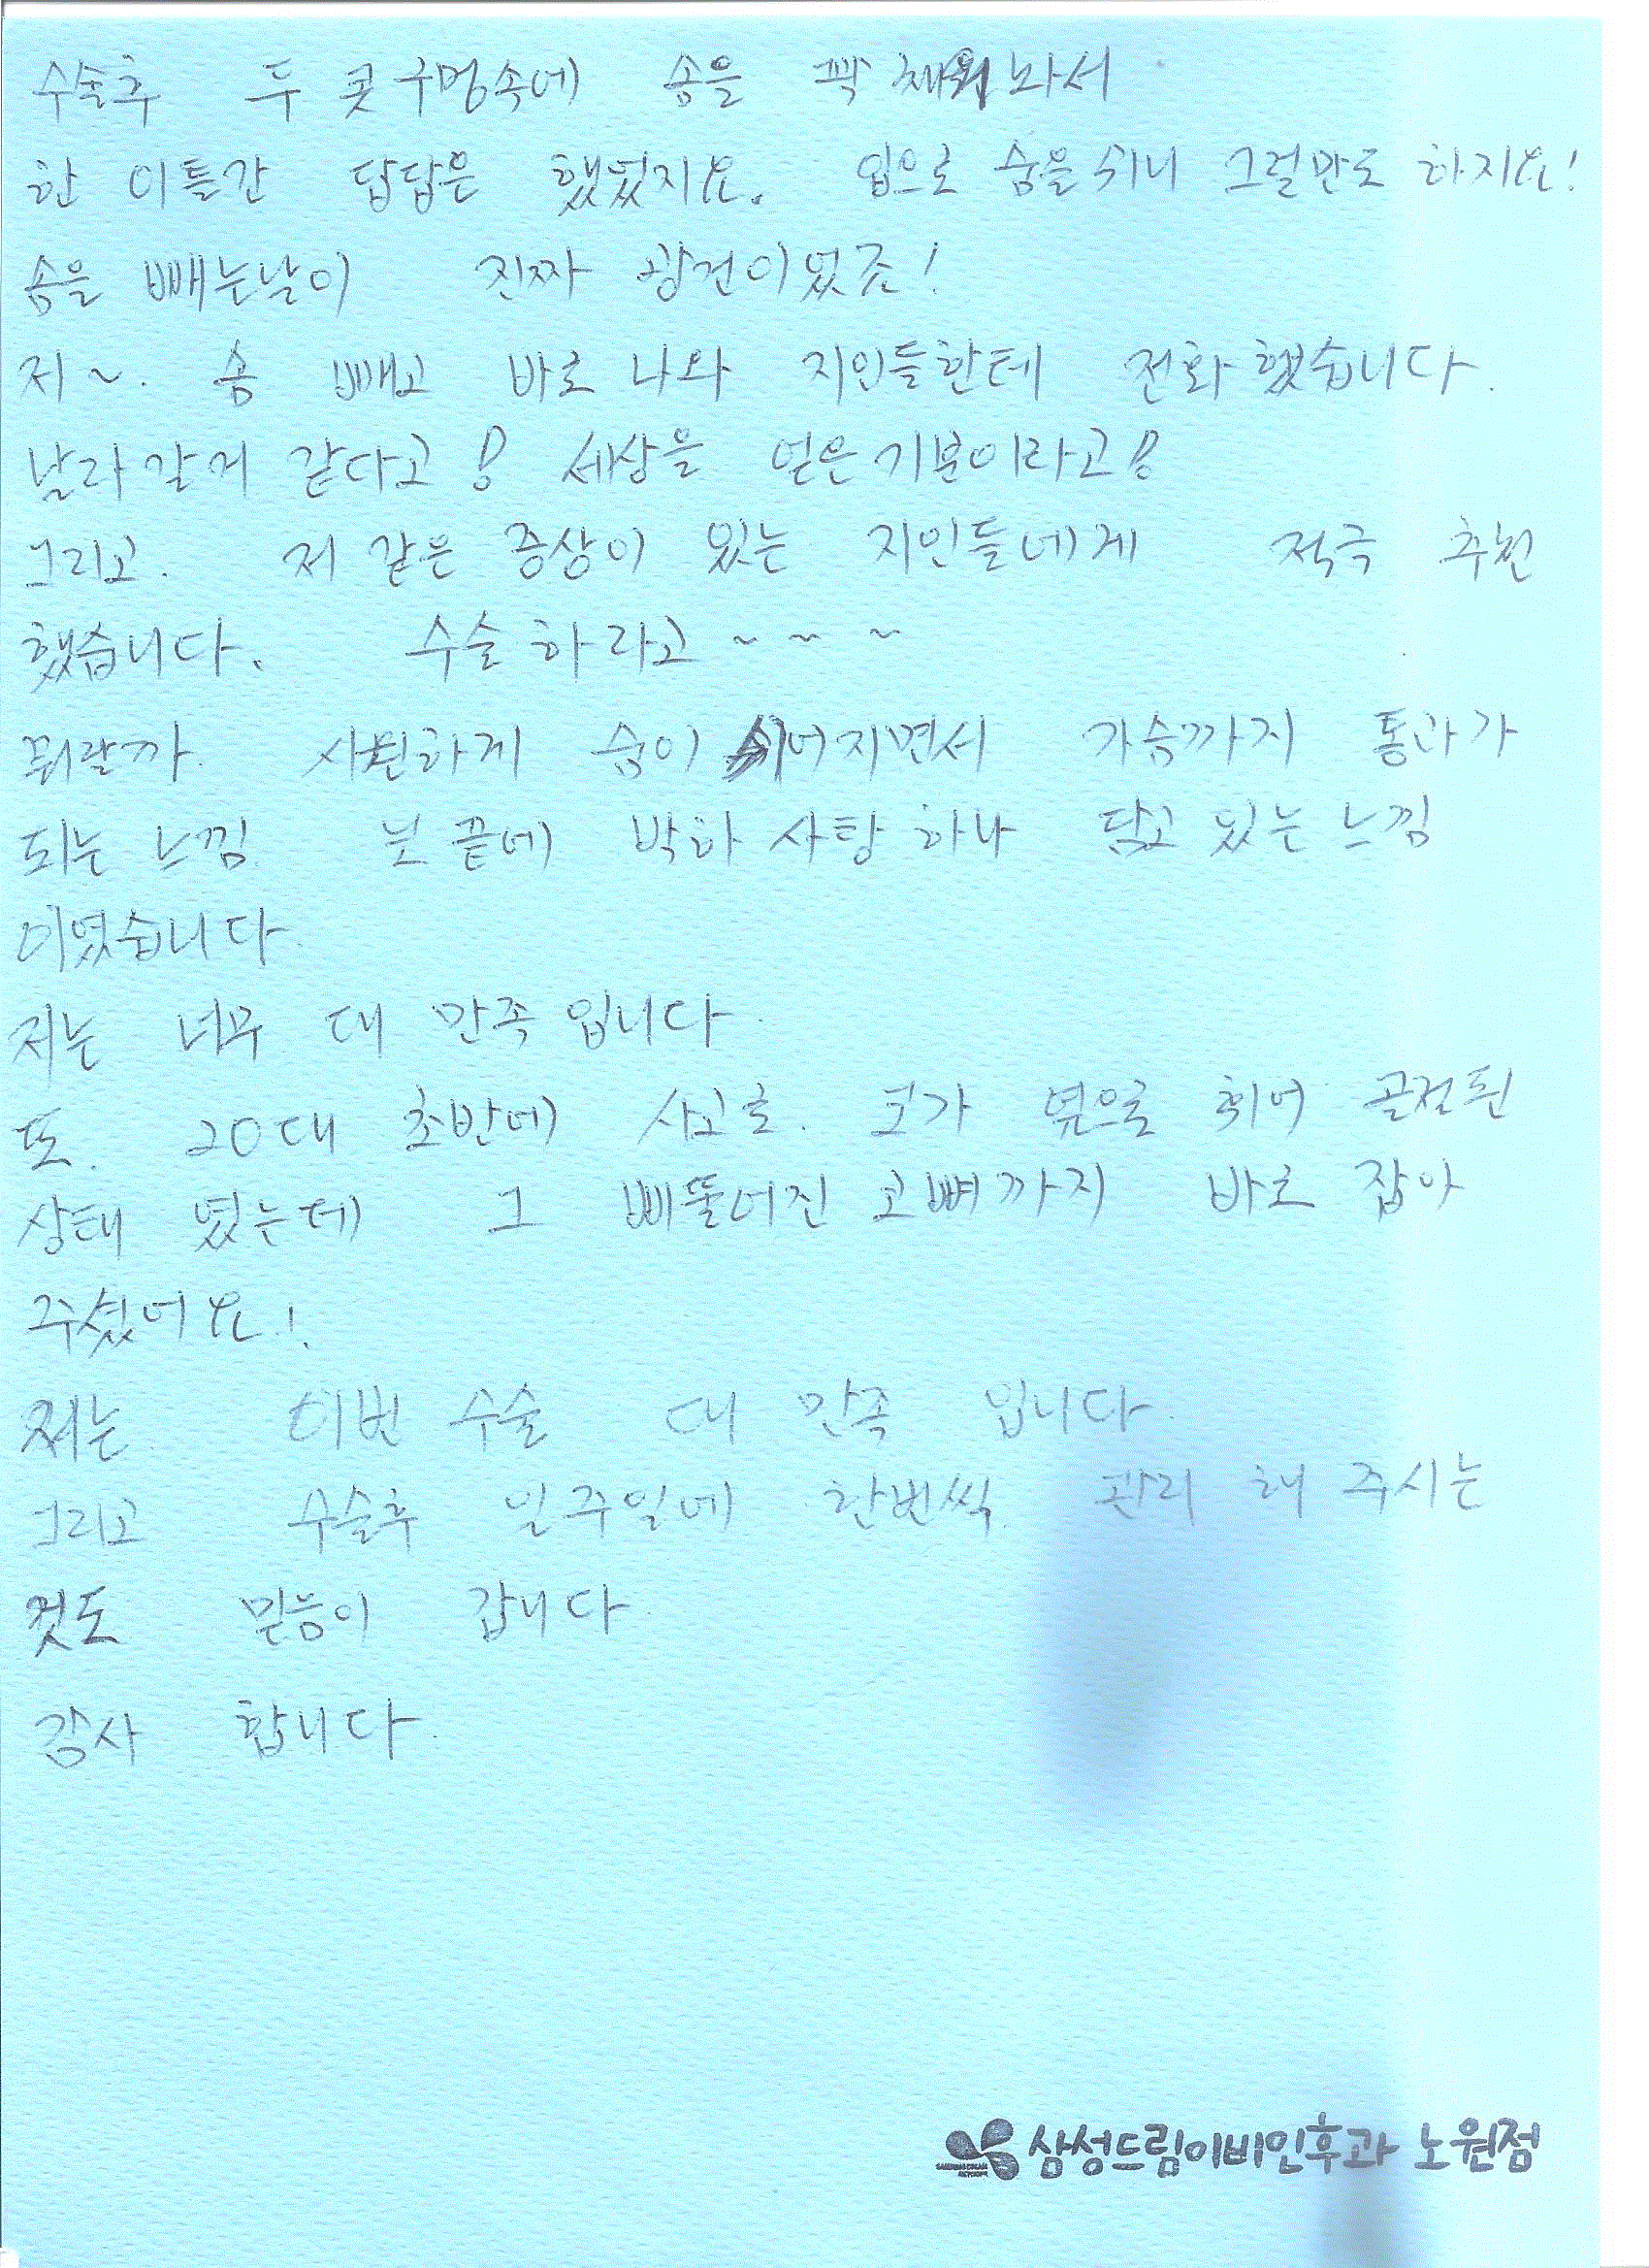 수술후 두 콧구멍속에 솜을 꽉 채워 놔서
한 이틀간 답답은 했었지요. 입으로 숨을 쉬니 그럴만도 하지요!
솜을 빼는날이 진짜 이었죠!
저~. 솜 빼고 바로 나와 지인들한테 전화했습니다.
날라갈거 같다고! 세상을 얻은기분이라고!
그리고. 저 같은 증상이 있는 지인들에게 적극 추천
했습니다. 수술하라고 ~ ~ ~
뭐랄까. 시원하게 숨이 쉬어지면서 가슴까지 통과가
되는 느낌 끝에 박하 사탕 하나 있는 느낌
이였습니다
저는 너무 대 만족 입니다.
또. 20대 초반에 사고로. 코가 옆으로 휘어 골절된
상태 였는데 그 삐뚤어진 코뼈까지 바로 잡아
주셨어요!
저는 이번 수술 대 만족 입니다.
그리고 수술후 일주일에 한번씩 관리 해 주시는
것도 믿음이 갑니다.
감사 합니다.
삼성드림이비인후과 노원점